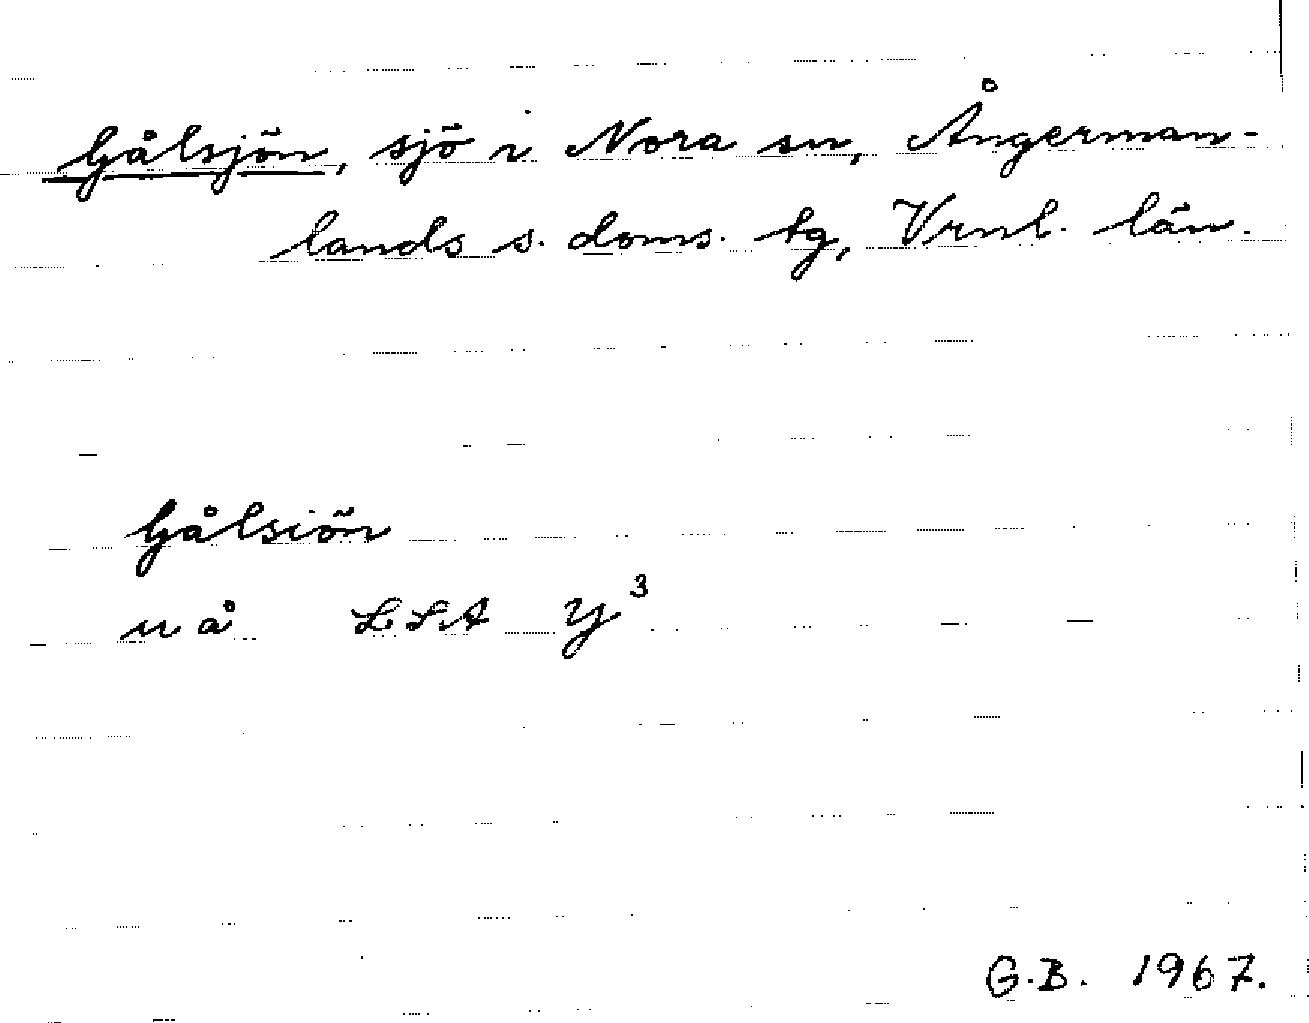 Gålsjön, sjö i Nora sn, Ångerman-
lands s. doms. tg, Vrnl. län.
Gålsiön
uå LSA Y³
G.B. 1967.